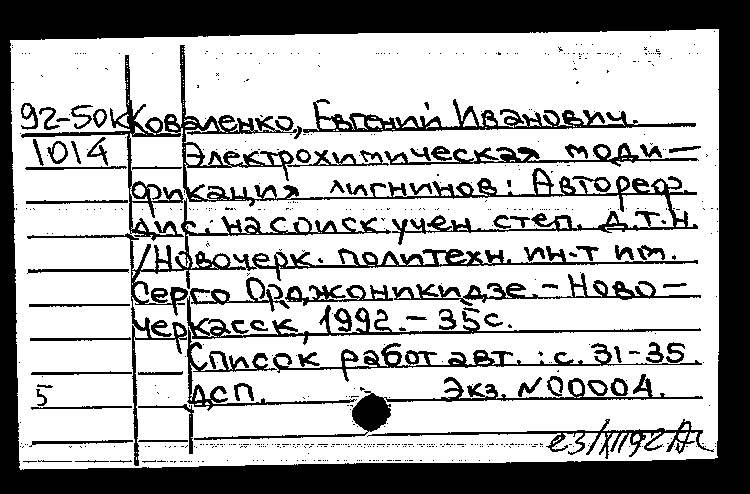 92-50к Коваленко, Евгений Иванович.
1014 Электрохимическая моди-
фикация лигнинов: Автореф.
дис. на соиск. учен. степ. д.т.н.
/Новочерк. политехн. ин-т им.
Серго Орджоникидзе. - Ново-
черкасск, 1992. - 35с.
Список работ авт.: с. 31-35.
5 ДСП. Экз. N00004.
23/XII92